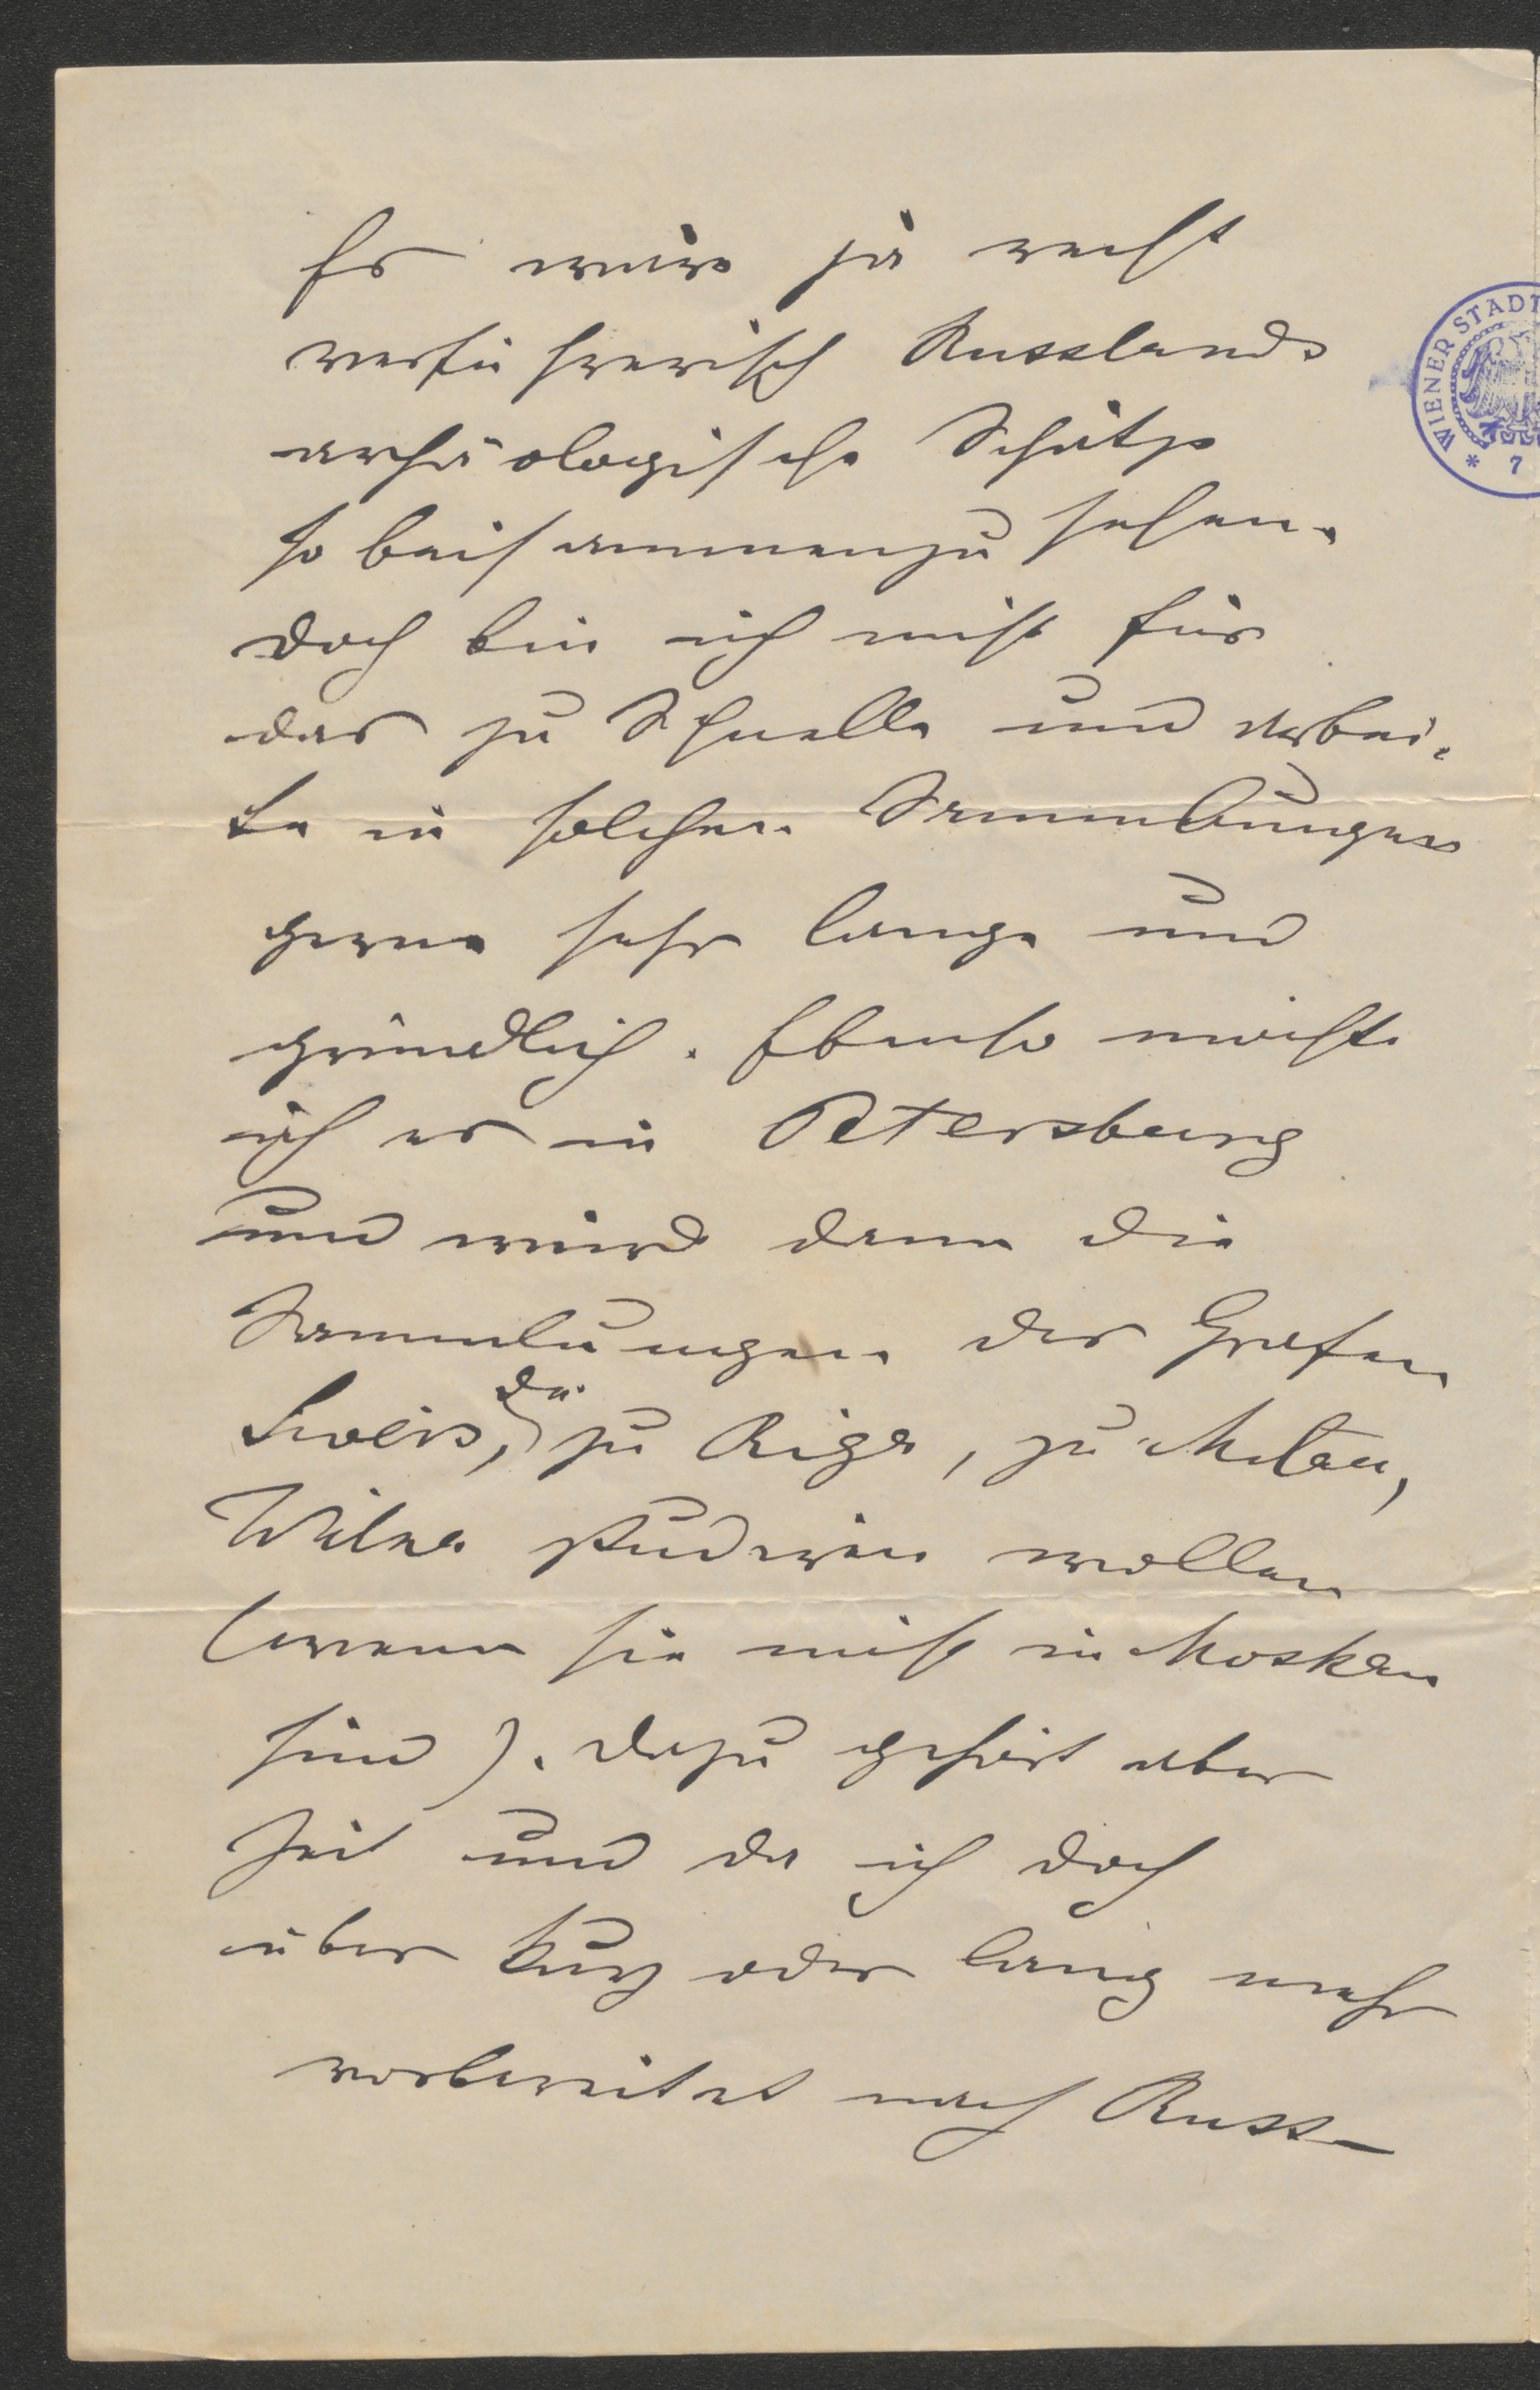 Es wäre ja recht
verführerisch Russlands
archäologische Schätze
so beisammenzusehen.
doch bin ich nicht für
das zu Schnelle und arbei-
te in solchen Sammlungen
gerne sehr lange und
gründlich. Ebenso möchte
ich es in Petersburg
und würde dann die
Sammlungen des Grafen
die
zu Riga, zu Mitau,
Wilna studiren wollen
(wenn sie nicht in Moskau
sind). Dazu gehört aber
Zeit und da ich doch
über kurz oder lang mehr
vorbereitet nach Russ-
WIENER STADT
* 7